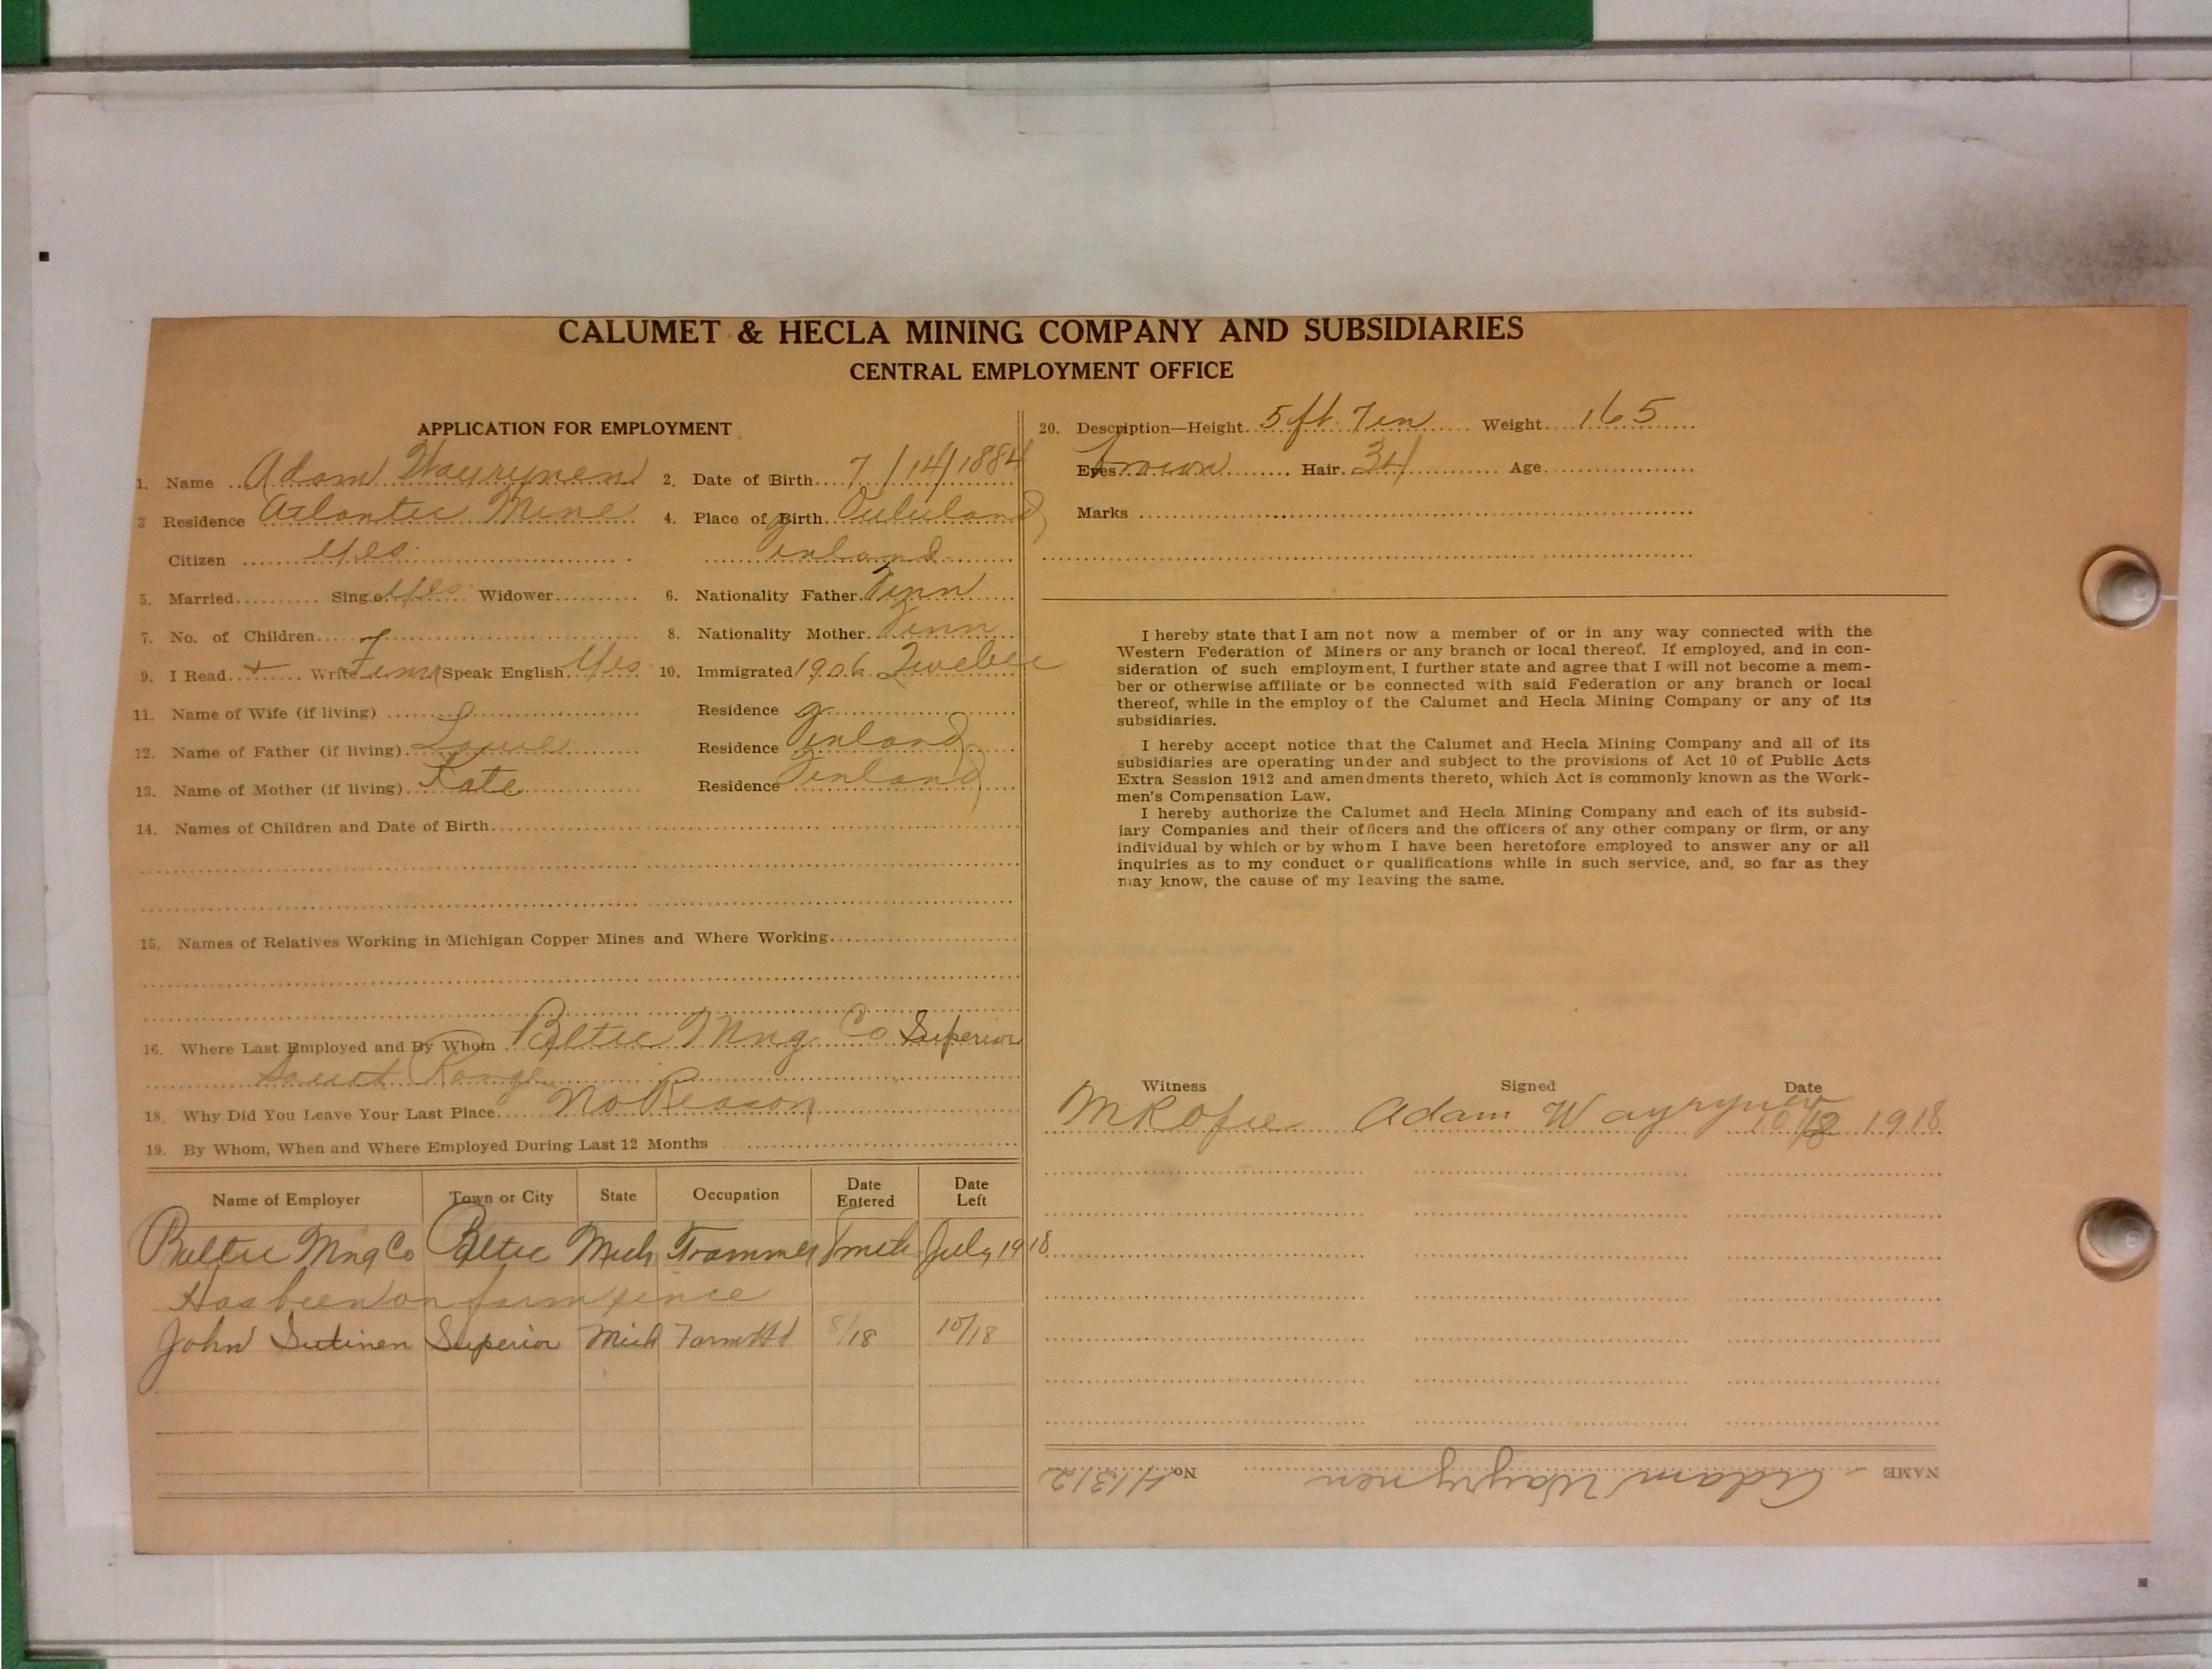 CALUMET & HECLA MINING COMPANY AND SUBSIDIARIES
CENTRAL EMPLOYMENT OFFICE
APPLICATION FOR EMPLOYMENT
1. Name Adam Wayrynen 2. Date of Birth 7/14/1884
3 Residence Atlantic Mine 4. Place of Birth
Citizen Yes Finland
5. Married Single Yes Widower 6. Nationality Father Finn
7. No. of Children 8. Nationality Mother Finn
9. I Read Write Speak English Yes 10. Immigrated 1906
11. Name of Wife (if living) Residence
12. Name of Father (if living) Residence Finland
13. Name of Mother (if living) Kate Residence Finland
14. Names of Children and Date of Birth
15. Names of Relatives Working in Michigan Copper Mines and Where Working
16. Where Last Employed and By Whom Baltic Mng Co Superior
Range
18. Why Did You Leave Your Last Place No Reason
19. By Whom, When and Where Employed During Last 12 Months
Name of Employer Town or City State Occupation Date Entered Date Left
Baltic Mng Co Baltic Mich Trammer July 1918
Has been on farm since
John Sutinen Superior Mich Farm Hd 8/18 10/18
20. Description—Height 5 ft. 7 in Weight 165
Eyes brown Hair 34 Age
Marks
I hereby state that I am not now a member of or in any way connected with the
Western Federation of Miners or any branch or local thereof. If employed, and in con-
sideration of such employment, I further state and agree that I will not become a mem-
ber or otherwise affiliate or be connected with said Federation or any branch or local
thereof, while in the employ of the Calumet and Hecla Mining Company or any of its
subsidiaries.
I hereby accept notice that the Calumet and Hecla Mining Company and all of its
subsidiaries are operating under and subject to the provisions of Act 10 of Public Acts
Extra Session 1912 and amendments thereto, which Act is commonly known as the Work-
men's Compensation Law.
I hereby authorize the Calumet and Hecla Mining Company and each of its subsid-
iary Companies and their officers and the officers of any other company or firm, or any
individual by which or by whom I have been heretofore employed to answer any or all
inquiries as to my conduct or qualifications while in such service, and, so far as they
may know, the cause of my leaving the same.
Witness Signed Date
Adam Wayrynen 1918
NAME Adam Wayrynen No. H1312